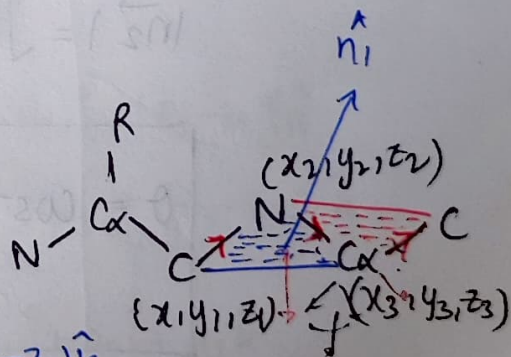 n̂1
R
(x2, y2, z2)
N Cα C N Cα C
(x1y1, z1) (x3, y3, z3)